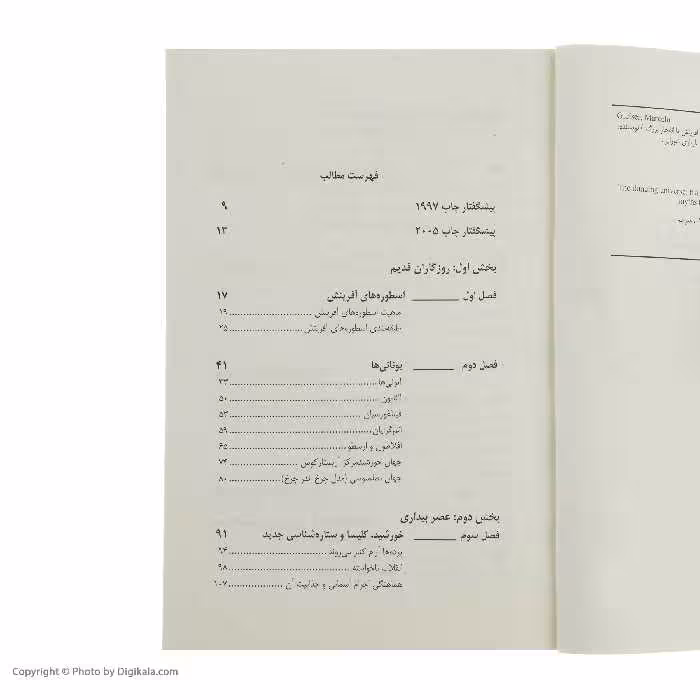 فهرست مطالب
پیشگفتار چاپ ۱۹۹۷ ۹
پیشگفتار چاپ ۲۰۰۵ ۱۳
بخش اول: روزگاران قدیم
فصل اول ______ اسطوره‌های آفرینش ۱۷
ماهیت اسطوره‌های آفرینش ۱۹
طبقه‌بندی اسطوره‌های آفرینش ۲۵
فصل دوم ______ یونانی‌ها ۴۱
ایونی‌ها ۴۳
۵۰
فیثاغورسیان ۵۳
اتم‌گرایان ۵۹
افلاطون و ارسطو ۶۵
جهان خورشیدمرکز آریستارکوس ۷۴
جهان بطلمیوسی (مدل چرخ اندر چرخ) ۸۰
بخش دوم: عصر بیداری
فصل سوم ______ خورشید، کلیسا و ستاره‌شناسی جدید ۹۱
انقلاب ناخواسته ۹۸
هماهنگی اجرام آسمانی و جذابیت آن ۱۰۷
Marcelo
The dancing universe
Copyright © Photo by Digikala.com